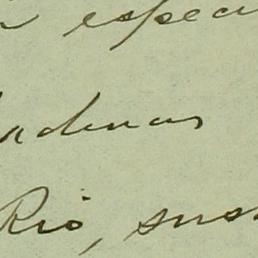 especi
adenas
Rio, sus